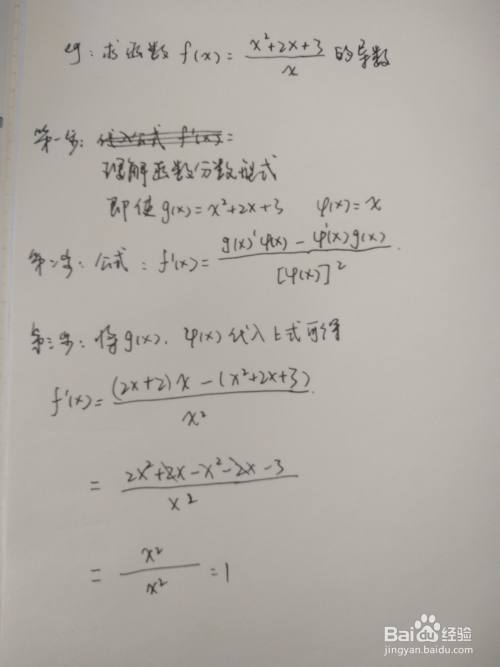 例：求函数 f(x) = \frac{x²+2x+3}{x} 的导数
第一步：代入公式 f'(x)=
理解函数分数形式
即使g(x)=x²+2x+3 φ(x)=x
第二步：公式：f'(x)=\frac{g(x)'φ(x) - φ'(x)g(x)}{[φ(x)]²}.
第三步：将g(x)、φ(x)代入上式可得
f'(x)=\frac{(2x+2)x-(x²+2x+3)}{x²}.
= \frac{2x²+2x-x²-2x-3}{x²}
= \frac{x²}{x²} =1
Bai度经验
jingyan.baidu.com